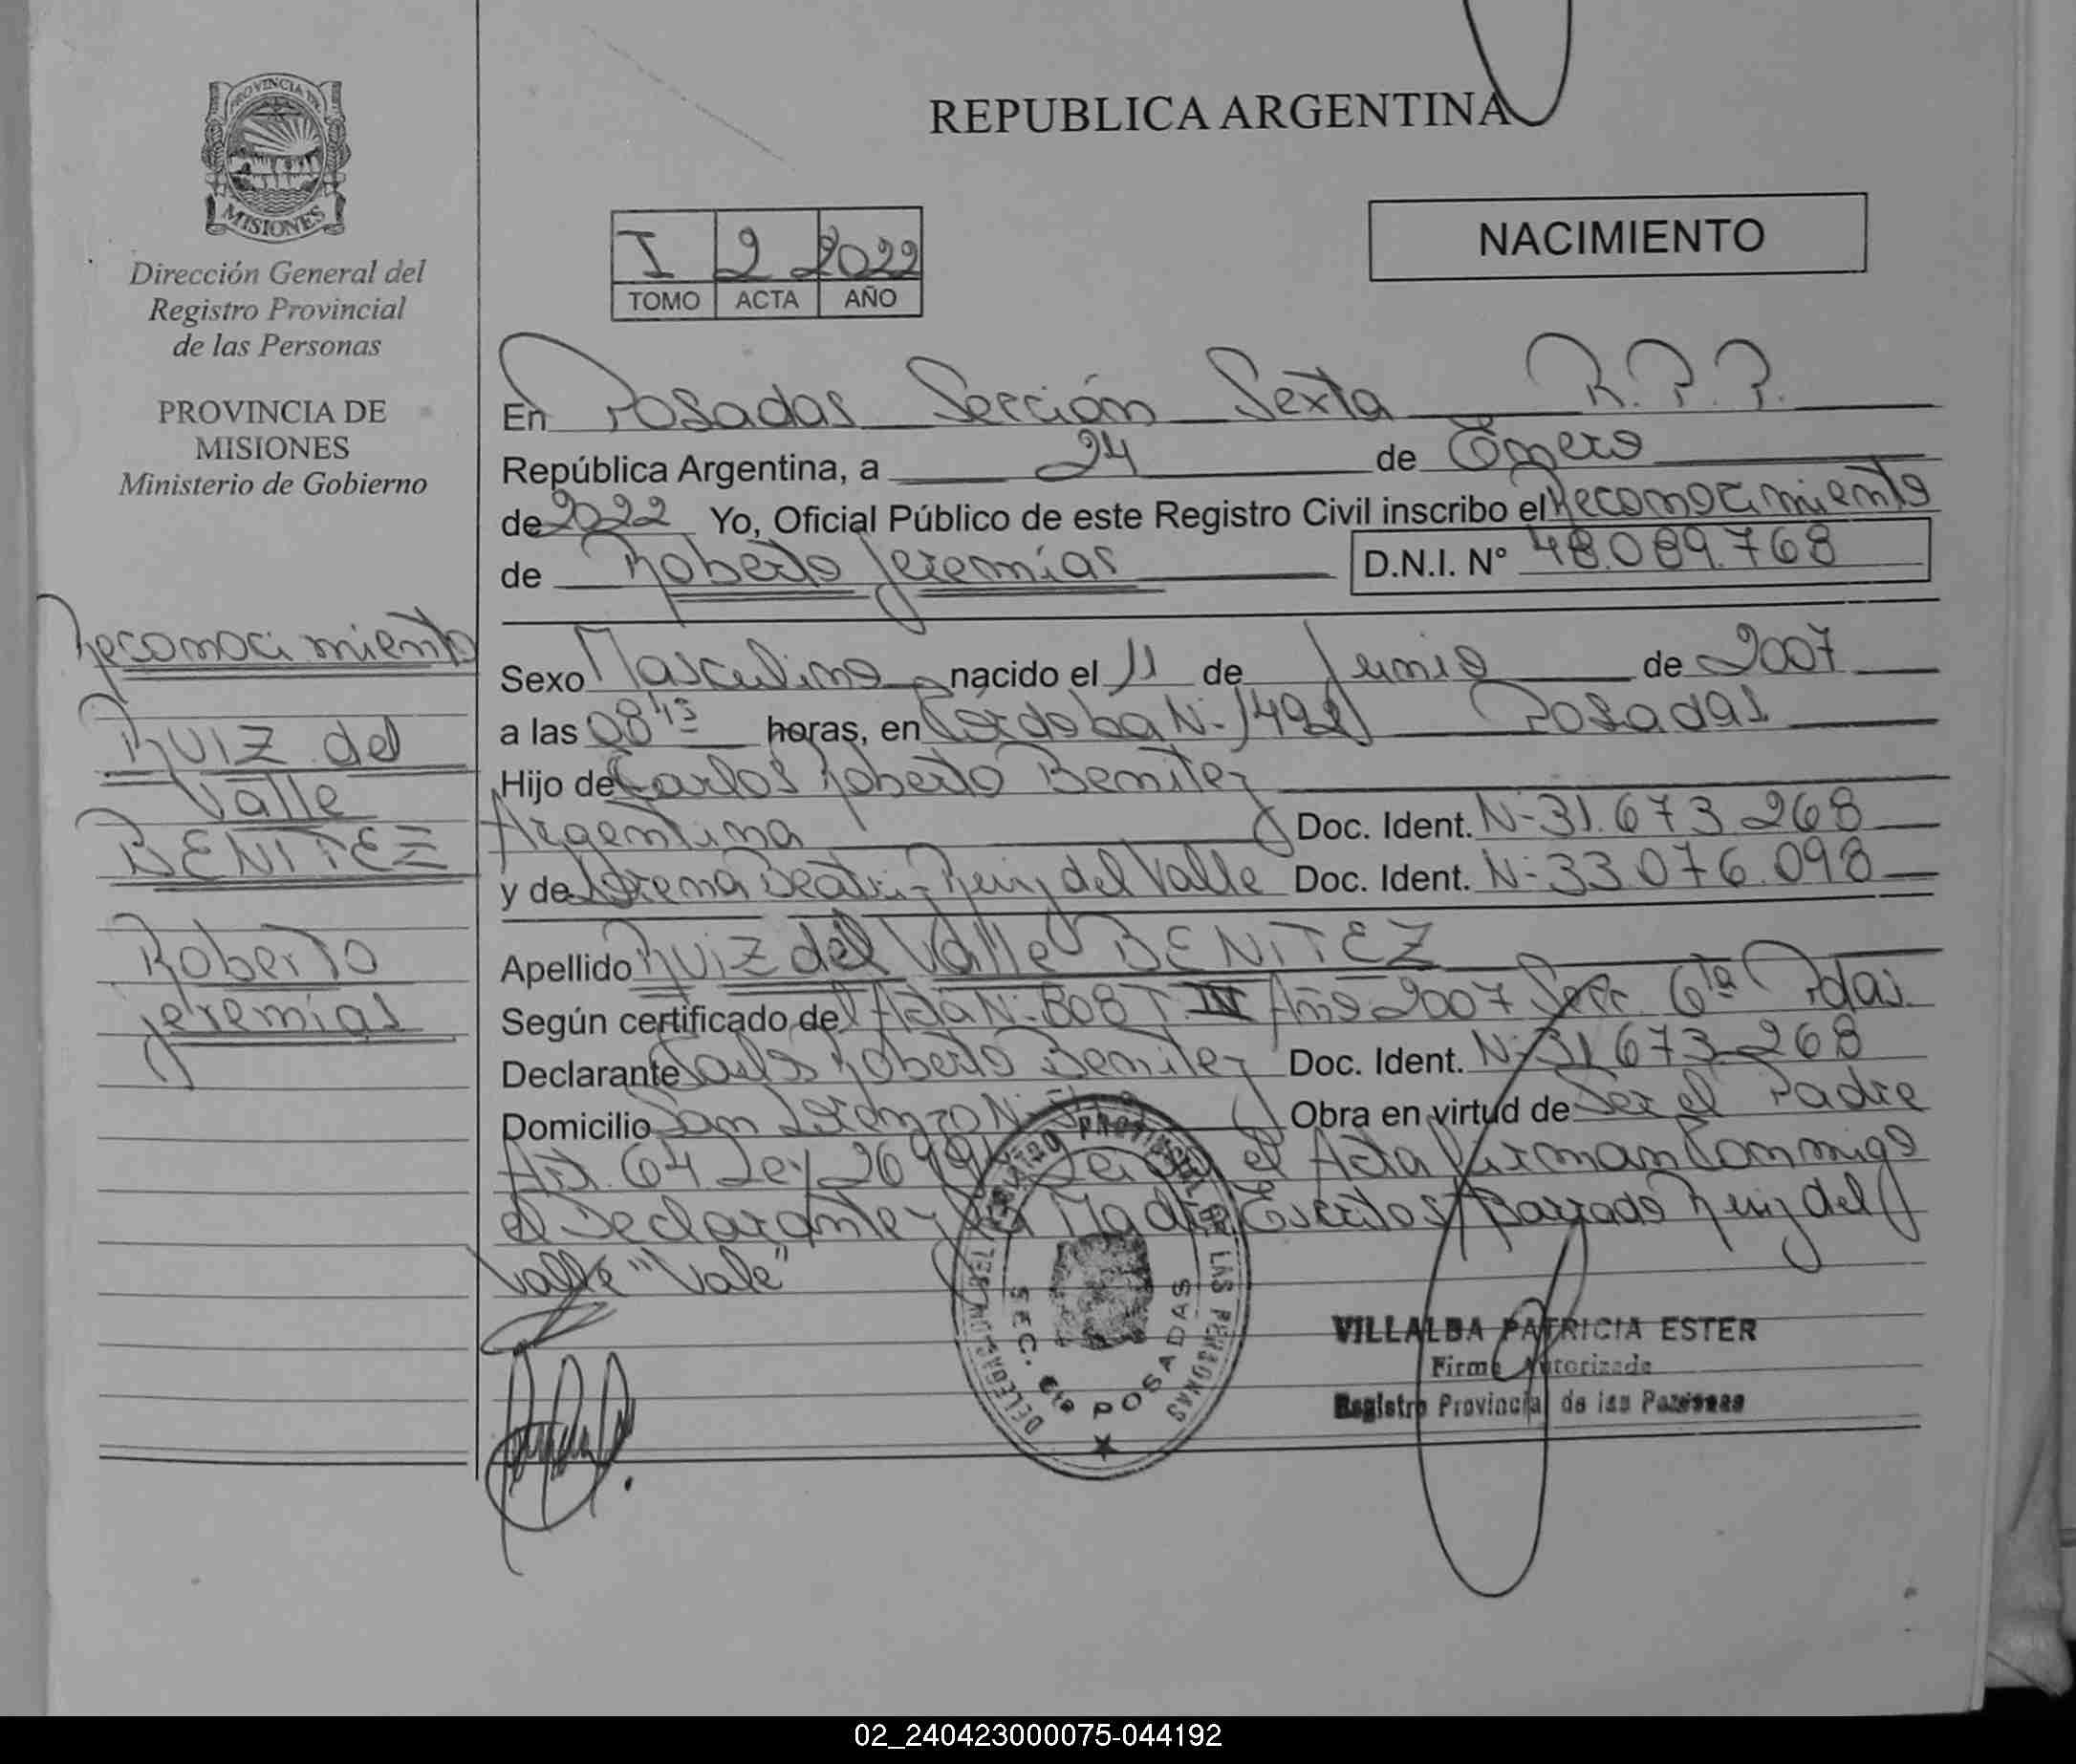 PROVINCIA DE
MISIONES
Dirección General del
Registro Provincial
de las Personas
PROVINCIA DE
MISIONES
Ministerio de Gobierno
Reconocimiento
RUIZ del
Valle
BENITEZ
Roberto
Jeremías
REPUBLICA ARGENTINA
NACIMIENTO
I 2 2022
TOMO ACTA AÑO
En Posadas Sección Sexta R.P.P.
República Argentina, a 24 de Enero
de 2022 Yo, Oficial Público de este Registro Civil inscribo el Reconocimiento
de Roberto Jeremías D.N.I. N° 48.089.768
Sexo Masculino nacido el 11 de Junio de 2007
a las 08 45 horas, en Córdoba N- Posadas
Hijo de Carlos Roberto Benitez
Argentina Doc. Ident. N- 31.673.268
y de Lorena Beatriz Ruiz del Valle Doc. Ident. N- 33.076.098
Apellido RUIZ del Valle BENITEZ
Según certificado del Acta N- 808 T. IV Año 2007 Secc. 6ta Pdas
Declarante Carlos Roberto Benitez Doc. Ident. N- 31.673.268
Domicilio San Lorenzo N- Obra en virtud de Ser el Padre
Art. 64 Ley el Acta Firman Conmigo
el Declarante y la Madre Escritos/Barrado Ruiz del
Valle "Vale"
REGISTRO PROVINCIAL DE LAS PERSONAS
DELEGACION
SEC. 6ta POSADAS
VILLALBA PATRICIA ESTER
Firma Autorizada
Registro Provincial de las Personas
02_240423000075-044192